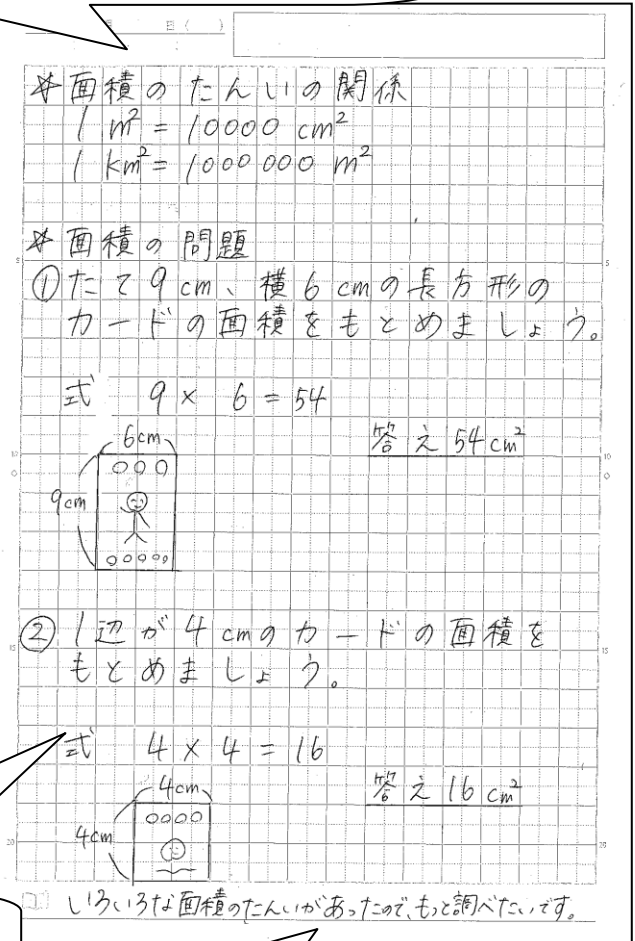 月 日( )
☆面積のたんいの関係
1 m² = 10000 cm²
1 km² = 1000 000 m²
☆面積の問題
①たて9cm、横6cmの長方形の
カードの面積をもとめましょう。
式 9 × 6 = 54
答え 54cm²
6cm
9cm
②1辺が4cmのカードの面積を
もとめましょう。
式 4 × 4 = 16
答え 16cm²
4cm
4cm
いろいろな面積のたんいがあったので、もっと調べたいです。
5
5
10
10
15
15
20